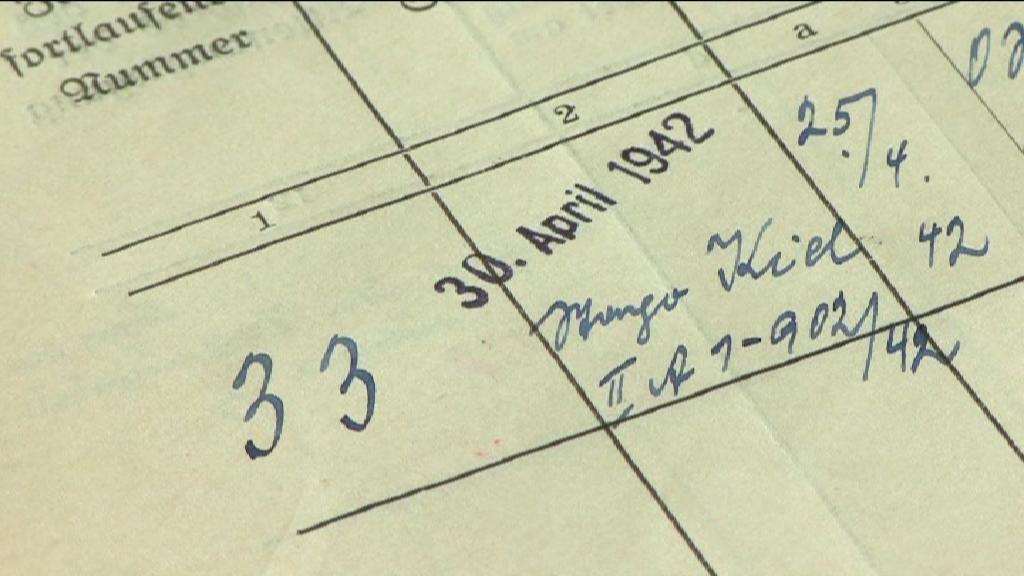 fortlaufende
Nummer
1
2
a
30. April 1942
25./4.
42
Kiel
II A 1-902/42
33